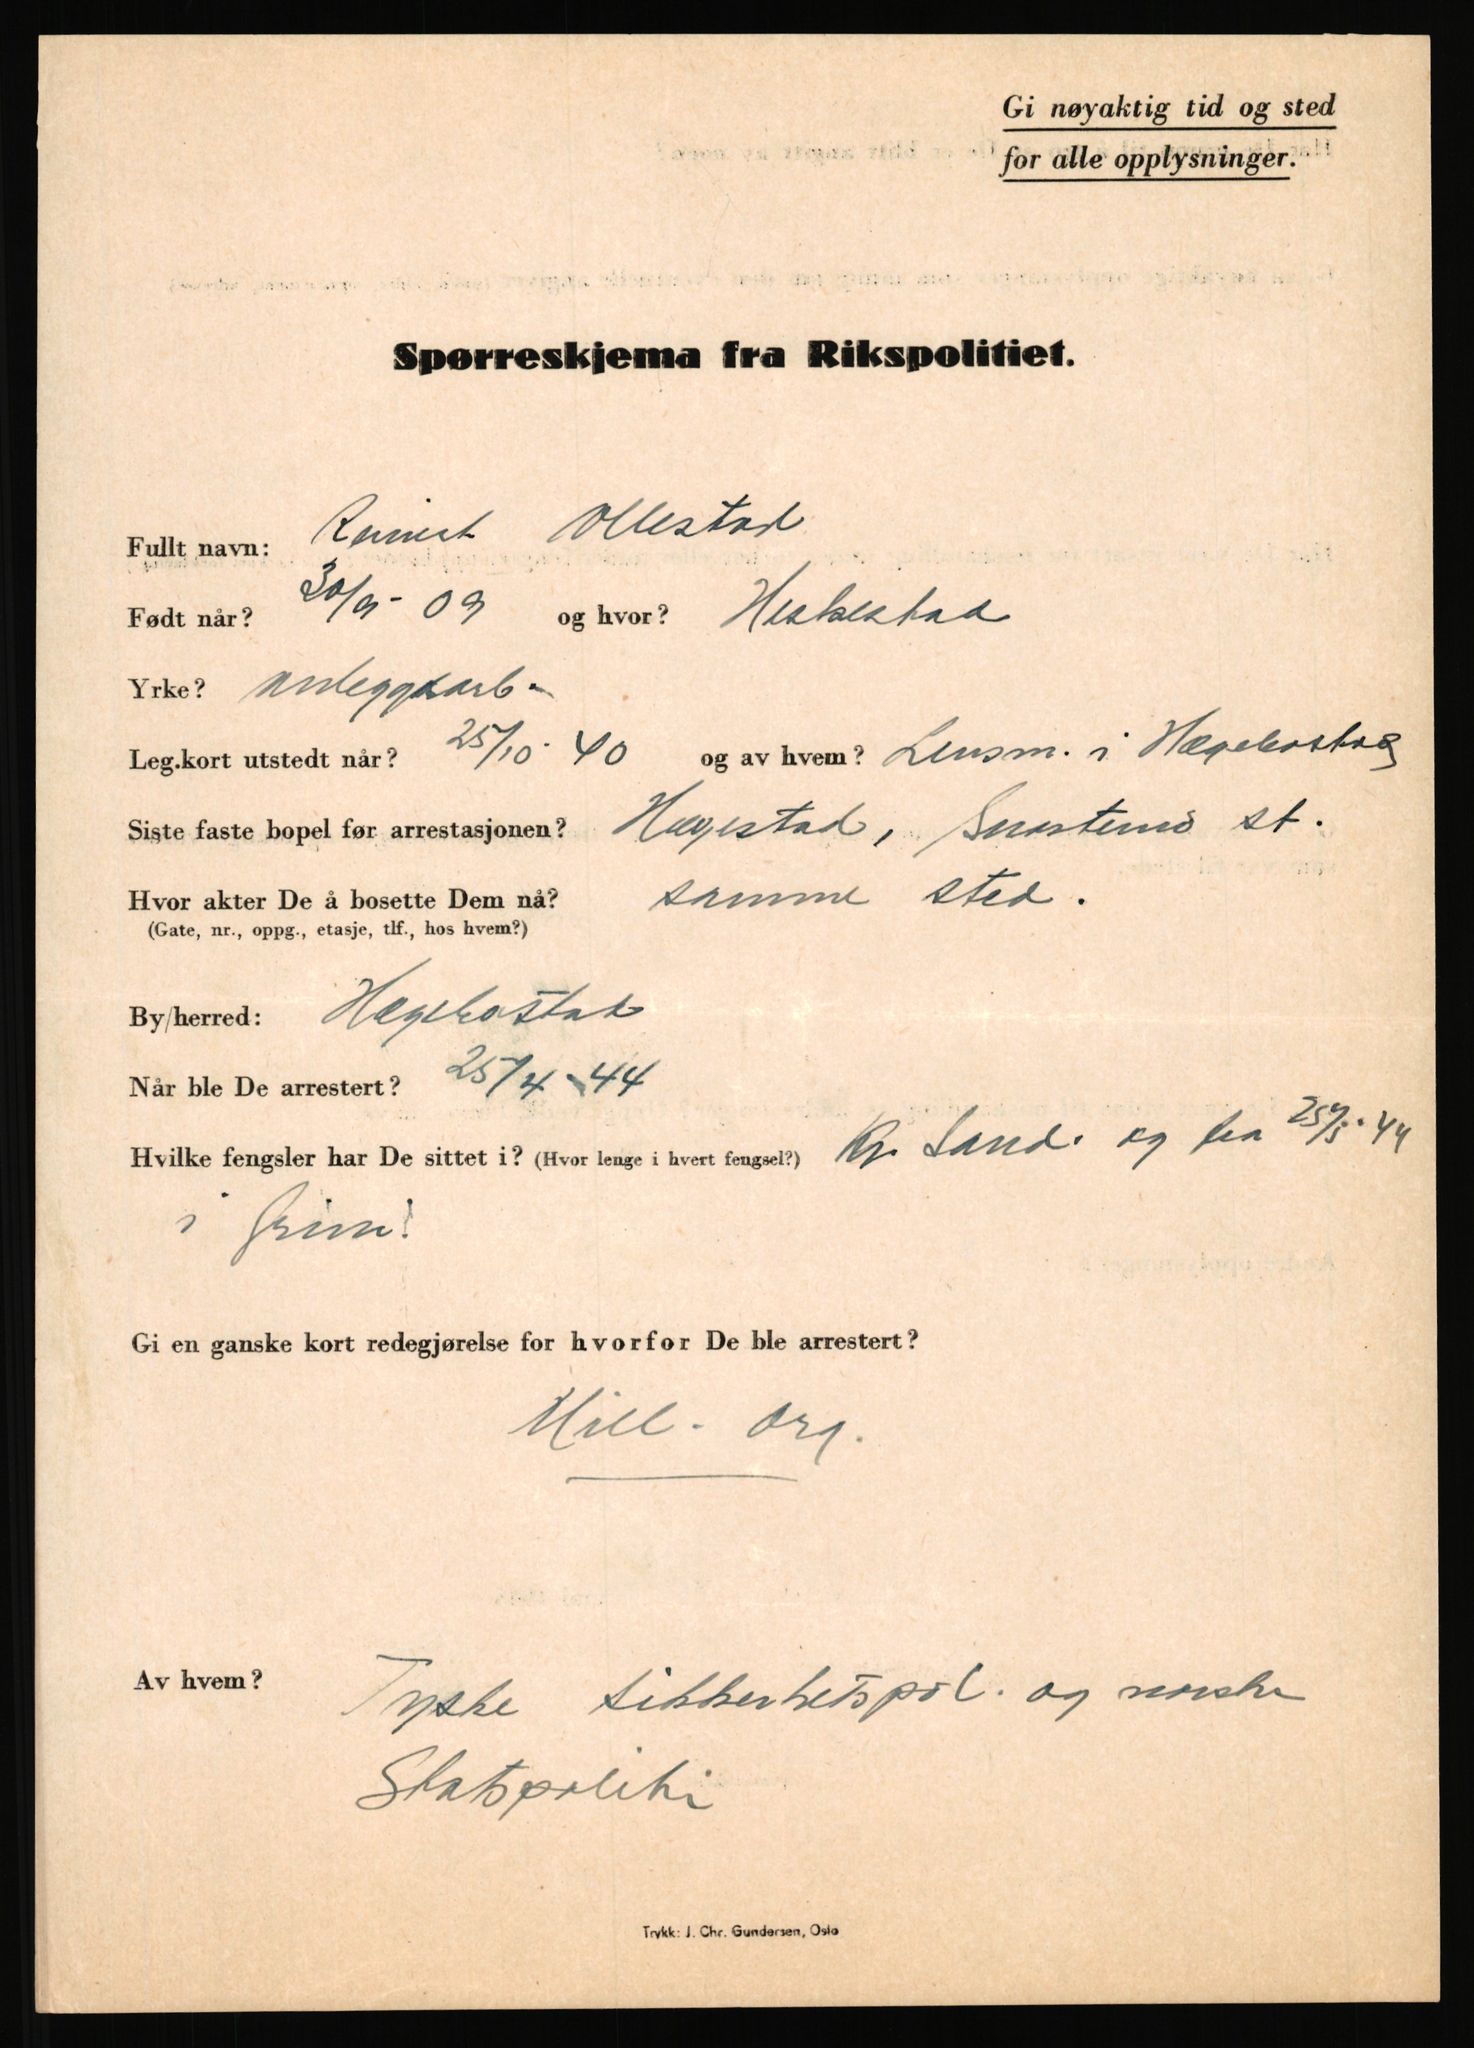 Gi nøyaktig tid og sted
for alle opplysninger.
Spørreskjema fra Rikspolitiet.
Fullt navn: Ollestad
Født når? 30/9- 09 og hvor? Heskestad
Yrke? anleggsarb.
Leg.kort utstedt når? 25/10- 40 og av hvem? Lensm. i Hægebostad
Siste faste bopel før arrestasjonen? Hægestad, Snartemo st.
Hvor akter De å bosette Dem nå? samme sted.
(Gate, nr., oppg., etasje, tlf., hos hvem?)
By/herred: Hægebostad
Når ble De arrestert? 25/4-44
Hvilke fengsler har De sittet i? (Hvor lenge i hvert fengsel?) Kr. Sand. og fra 25/5-44
i Grini!
Gi en ganske kort redegjørelse for hvorfor De ble arrestert?
Mill. Org.
Av hvem? Tyske sikkerhetspol. og norske
Statspoliti
Trykk: J. Chr. Gundersen, Oslo